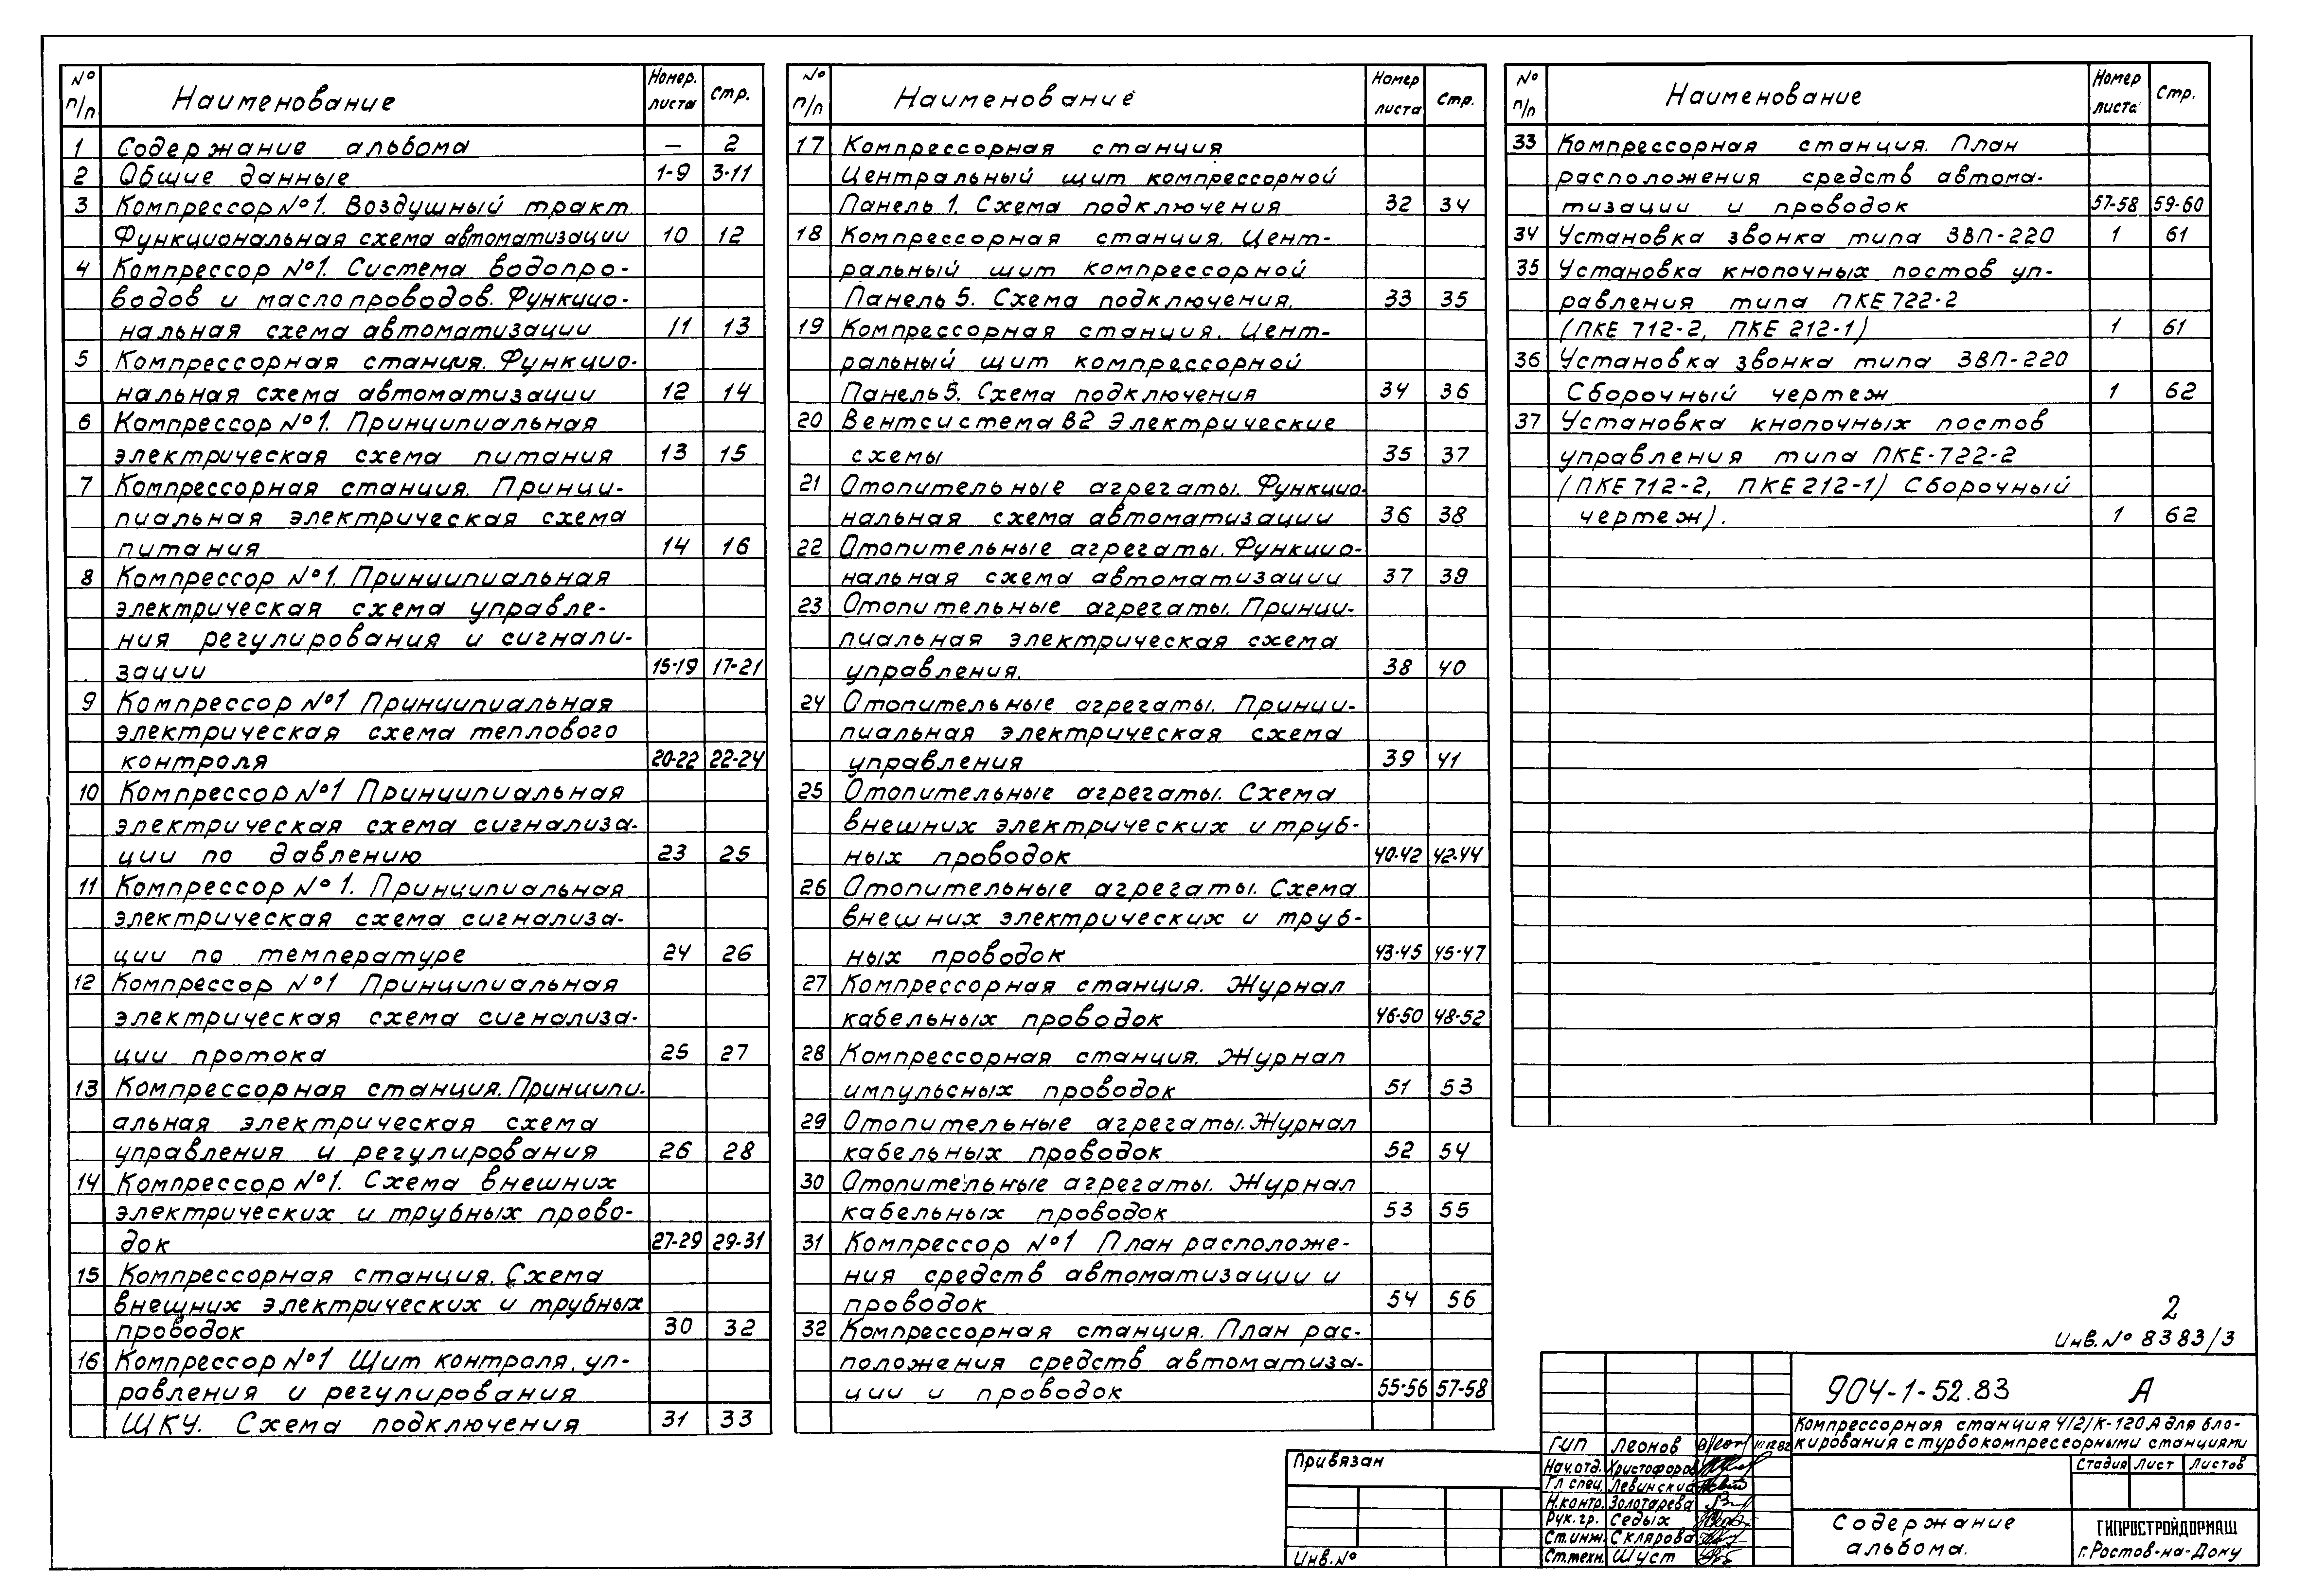 № п/п Наименование Номер. листа Стр.
1 Содержание альбома — 2
2 Общие данные 1-9 3-11
3 Компрессор №1. Воздушный тракт.
Функциональная схема автоматизации 10 12
4 Компрессор №1. Система водопро-
водов и маслопроводов. Функцио-
нальная схема автоматизации 11 13
5 Компрессорная станция. Функцио-
нальная схема автоматизации 12 14
6 Компрессор №1. Принципиальная
электрическая схема питания 13 15
7 Компрессорная станция. Принци-
пиальная электрическая схема
питания 14 16
8 Компрессор №1. Принципиальная
электрическая схема управле-
ния регулирования и сигнали-
зации 15-19 17-21
9 Компрессор №1 Принципиальная
электрическая схема теплового
контроля 20-22 22-24
10 Компрессор №1 Принципиальная
электрическая схема сигнализа-
ции по давлению 23 25
11 Компрессор №1. Принципиальная
электрическая схема сигнализа-
ции по температуре 24 26
12 Компрессор №1 Принципиальная
электрическая схема сигнализа-
ции протока 25 27
13 Компрессорная станция. Принципи-
альная электрическая схема
управления и регулирования 26 28
14 Компрессор №1. Схема внешних
электрических и трубных прово-
док 27-29 29-31
15 Компрессорная станция. Схема
внешних электрических и трубных
проводок 30 32
16 Компрессор №1 Щит контроля, уп-
равления и регулирования
ЩКУ. Схема подключения 31 33
№ п/п Наименование Номер листа Стр.
17 Компрессорная станция
Центральный щит компрессорной
Панель 1. Схема подключения 32 34
18 Компрессорная станция. Цент-
ральный щит компрессорной
Панель 5. Схема подключения. 33 35
19 Компрессорная станция. Цент-
ральный щит компрессорной
Панель 5. Схема подключения 34 36
20 Вентсистема В2 Электрические
схемы 35 37
21 Отопительные агрегаты. Функцио-
нальная схема автоматизации 36 38
22 Отопительные агрегаты. Функцио-
нальная схема автоматизации 37 39
23 Отопительные агрегаты. Принци-
пиальная электрическая схема
управления. 38 40
24 Отопительные агрегаты. Принци-
пиальная электрическая схема
управления 39 41
25 Отопительные агрегаты. Схема
внешних электрических и труб-
ных проводок 40-42 42-44
26 Отопительные агрегаты. Схема
внешних электрических и труб-
ных проводок 43-45 45-47
27 Компрессорная станция. Журнал
кабельных проводок 46-50 48-52
28 Компрессорная станция. Журнал
импульсных проводок 51 53
29 Отопительные агрегаты. Журнал
кабельных проводок 52 54
30 Отопительные агрегаты. Журнал
кабельных проводок 53 55
31 Компрессор №1 План расположе-
ния средств автоматизации и
проводок 54 56
32 Компрессорная станция. План рас-
положения средств автоматиза-
ции и проводок 55-56 57-58
№ п/п Наименование Номер листа Стр.
33 Компрессорная станция. План
расположения средств автома-
тизации и проводок 57-58 59-60
34 Установка звонка типа ЗВП-220 1 61
35 Установка кнопочных постов уп-
равления типа ПКЕ 722-2
(ПКЕ 712-2, ПКЕ 212-1) 1 61
36 Установка звонка типа ЗВП-220
Сборочный чертеж 1 62
37 Установка кнопочных постов
управления типа ПКЕ-722-2
(ПКЕ 712-2, ПКЕ 212-1) Сборочный
чертеж). 1 62
2
Инв. № 8383/3
904-1-52.83 А
Компрессорная станция 4(2)К-120А для бло-
кирования с турбокомпрессорными станциями
ГИП Леонов 10.12.82
Нач.отд. Христофоров
Гл спец. Левинский
Н.контр. Золотарева
Рук.гр. Седых
Ст.инж. Склярова
Ст.техн. Шуст
Стадия Лист Листов
Содержание
альбома.
ГИПРОСТРОЙДОРМАШ
г.Ростов-на-Дону
Привязан
Инв.№